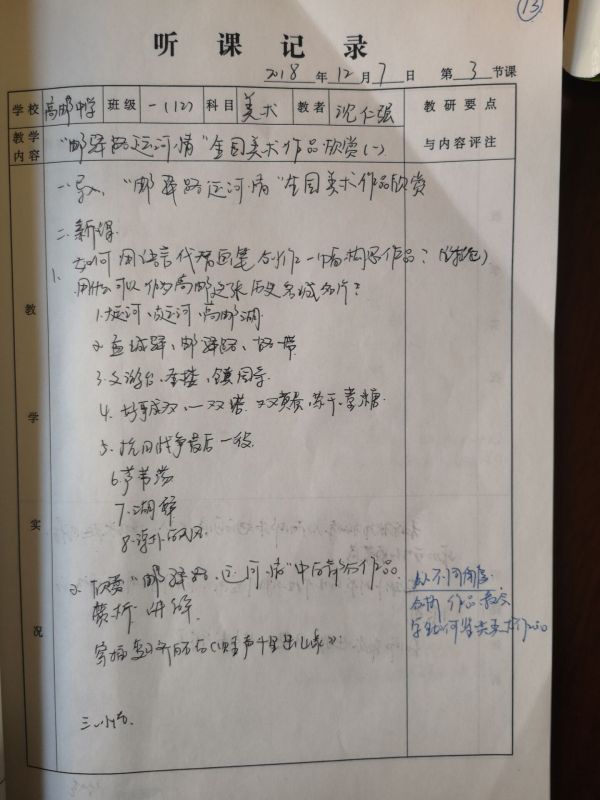 13
听课记录
2018 年 12 月 7 日 第 3 节课
学校 高邮中学 班级 一(12) 科目 美术 教者 沈仁强 教研要点
教学内容 "邮驿路运河情"全国美术作品欣赏(一) 与内容评注
一.导入."邮驿路运河情"全国美术作品欣赏
二.新课
1. 如何用语言代替画笔创作一幅构思作品?
用什么可以作为高邮这张历史名城名片?
1.大运河、古运河、高邮湖
2.盂城驿、邮驿路、
3.文游台、奎楼、镇国寺
4.好事成双,一双塔.双黄蛋,
5.抗日战争最后一役
6.芦苇荡
7.湖鲜
8.淳朴的民风
2.欣赏"邮驿路、运河情"中的部分作品
赏析 讲解
穿插
三.小结.
教学实况
从不同角度
分析作品.教会
学生如何鉴赏美术作品